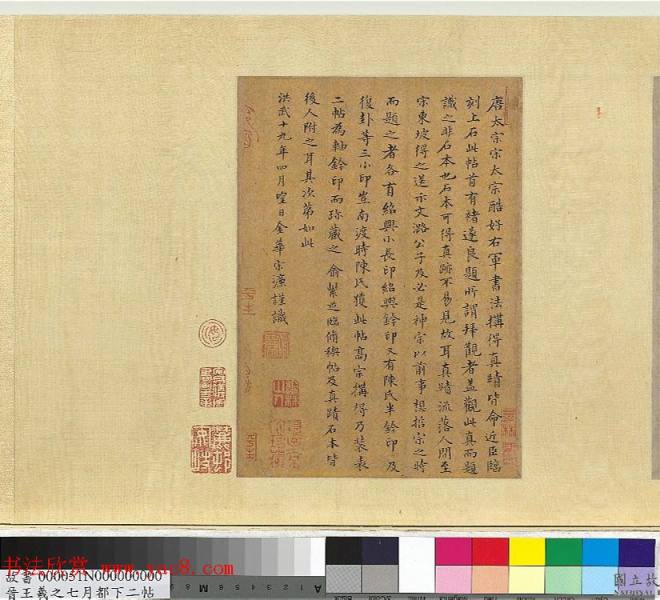 唐太宗宗太宗酷好右軍書法購得真蹟皆命近臣臨
刻上石此帖首有褚遂良題所謂拜觀者蓋觀此真而題
識之非石本也石本可得真跡不易見故耳真蹟流落人間至
宗東坡得之送示文潞公子及必是神宗以前事想哲宗之時
而題之者各有紹興小長印紹興鈐印又有陳氏半鈐印及
復卦等三小印豈南渡時陳氏獲此帖高宗購得乃裝表
二帖為軸鈐印而珍藏之俞繫迹臨脩禊帖及真蹟石本皆
後人附之耳其次第如此
洪武十九年四月望日金華宋濂謹識
书法欣赏 www.yac8.com
故書 000051N000000000
晉王羲之七月都下二帖
國立故
NATIONAL